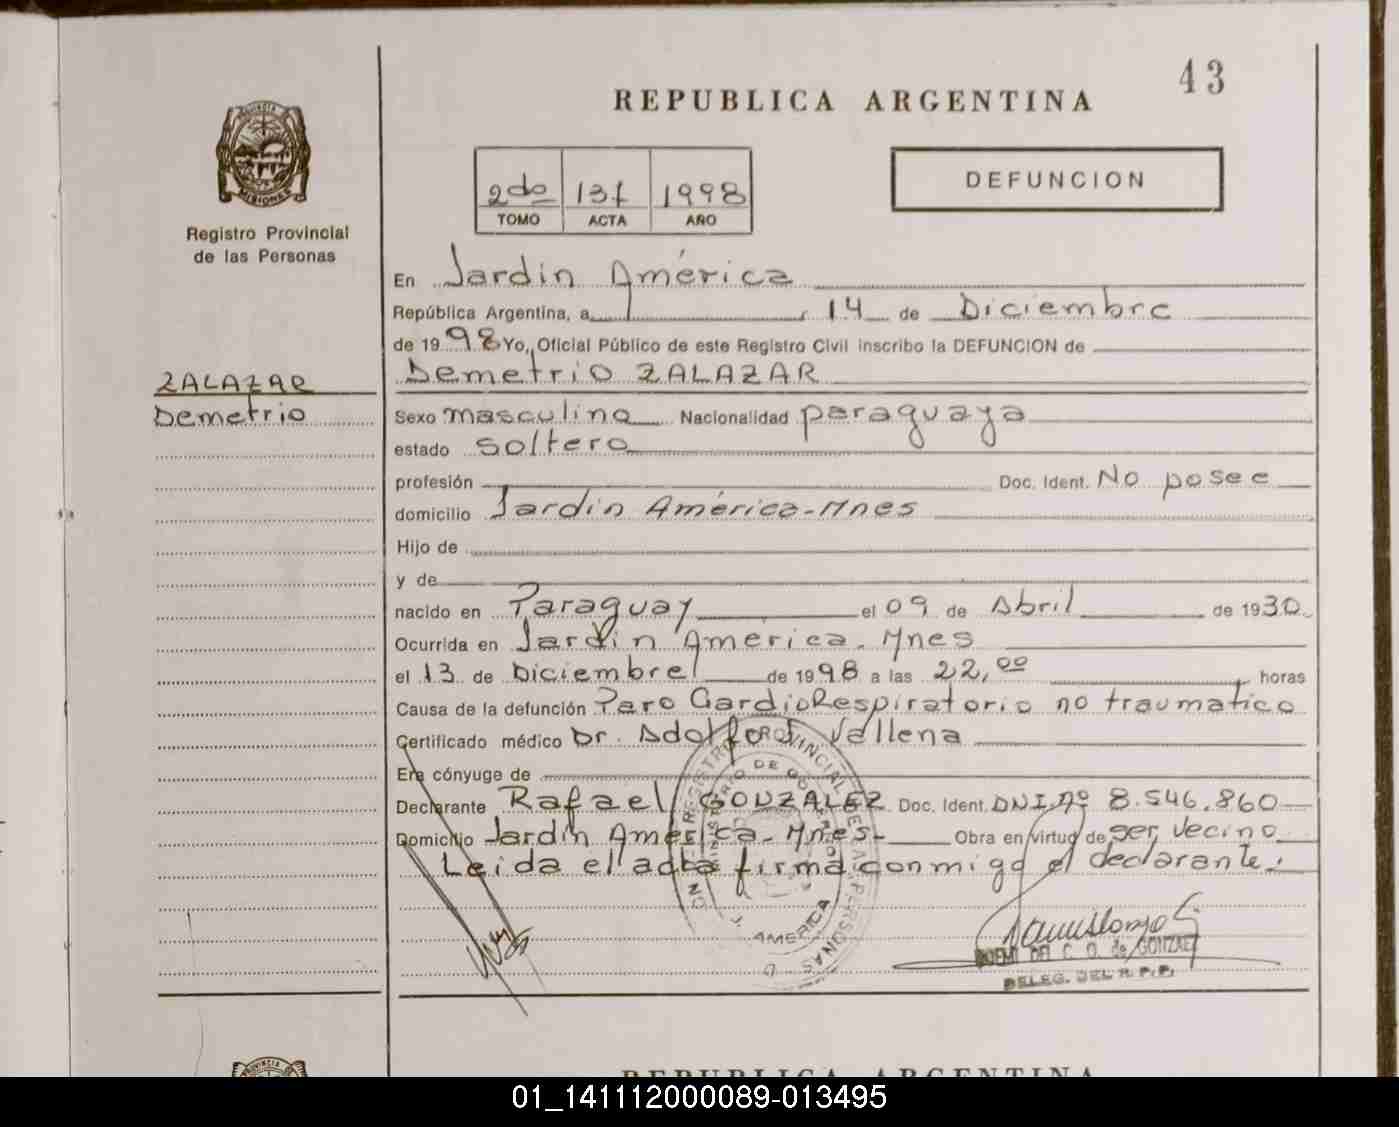 43
REPUBLICA ARGENTINA
PROVINCIA
MISIONES
Registro Provincial
de las Personas
2do 1998
TOMO ACTA AÑO
DEFUNCION
En Jardin América
República Argentina, a 14 de Diciembre
de 1998 Yo, Oficial Público de este Registro Civil inscribo la DEFUNCION de
ZALAZAR
Demetrio
Demetrio ZALAZAR
Sexo masculino Nacionalidad paraguaya
estado soltero
profesión Doc. Ident. No posee
domicilio Jardin América-Mnes
Hijo de
y de
nacido en Paraguay el 09 de Abril de 1930
Ocurrida en Jardin America-Mnes
el 13 de Diciembre de 1998 a las 22,00 horas
Causa de la defunción Paro CardioRespiratorio no traumatico
Certificado médico Dr. Adolfo Vallena
Era cónyuge de
Declarante Rafael GONZALEZ Doc. Ident. DNI Nº 8.546.860
Domicilio Jardin America-Mnes- Obra en virtud de ser vecino
Leida el acta firma conmigo el declarante.
REGISTRO PROVINCIAL DE LAS PERSONAS
MINISTERIO DE GOBIERNO
J. AMERICA
NOEMI DEL C. O. de GONZALEZ
DELEG. DEL R. P. P.
REPUBLICA ARGENTINA
01_141112000089-013495